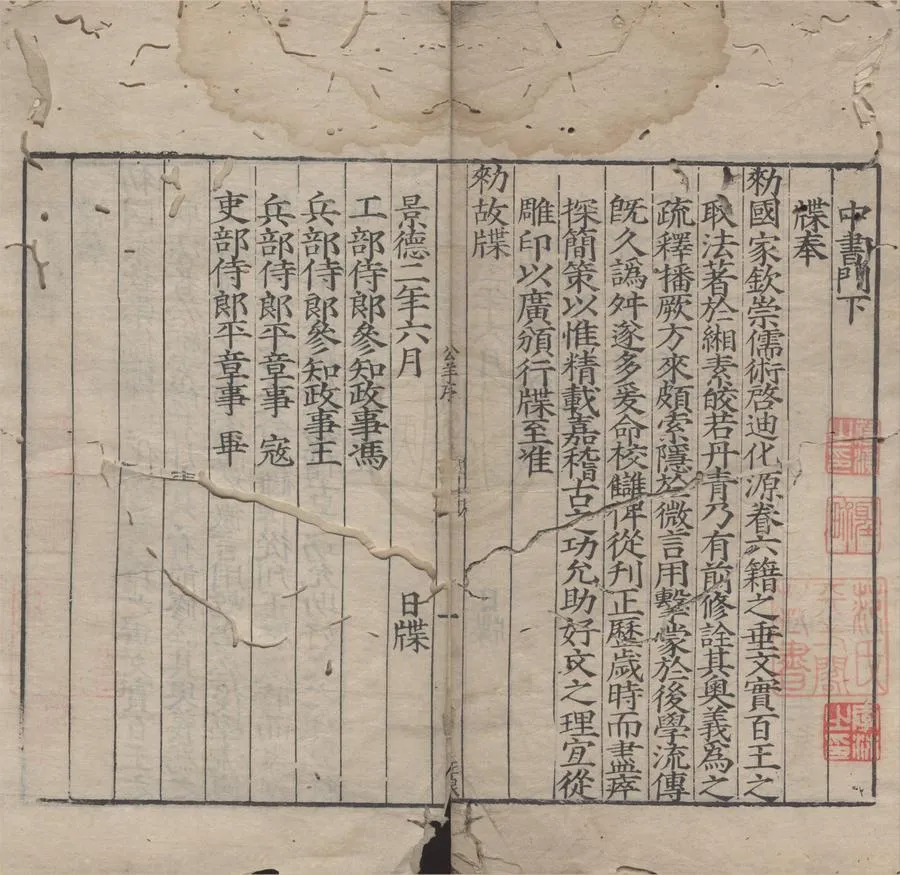 中書門下
牒奉
勑國家欽崇儒術啓迪化源眷六籍之垂文實百王之
取法著於緗素皎若丹青乃有前修詮其奧義為之
疏釋播厥方來頗索隱於微言用擊蒙於後學流傳
旣久譌舛遂多爰命校讎俾從刊正歷歲時而盡瘁
探簡策以惟精載嘉稽古之功允助好文之理宜從
雕印以廣頒行牒至准
勑故牒
公羊序
景德二年六月 日牒
工部侍郎參知政事馮
兵部侍郎參知政事王
兵部侍郎平章事 寇
吏部侍郎平章事 畢